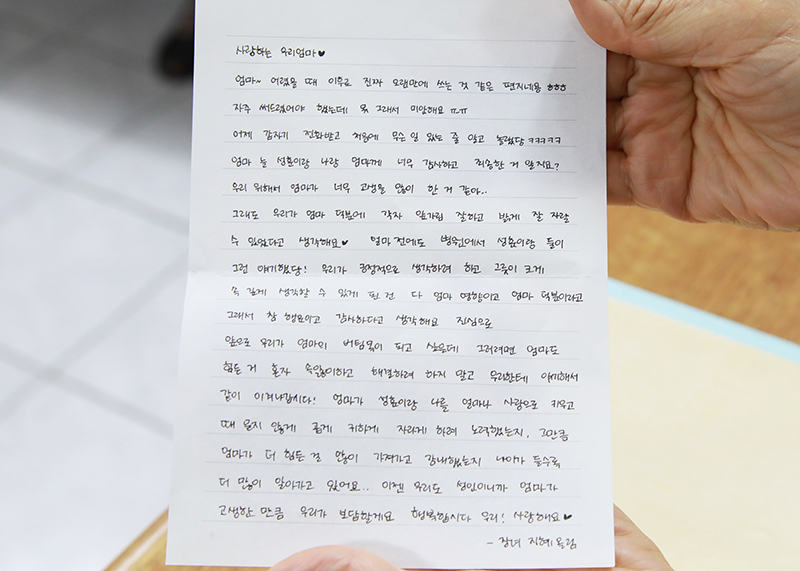 사랑하는 우리엄마♥
엄마~ 어렸을 때 이후로 진짜 오랜만에 쓰는 것 같은 편지네용 ㅎㅎㅎ
자주 써드렸어야 했는데 못 그래서 미안해요 ㅠㅠ
어제 갑자기 전화받고 처음에 무슨 일 있는 줄 알고 놀랬당 ㅋㅋㅋㅋㅋ
엄마 늘 성훈이랑 나랑 엄마께 너무 감사하고 죄송한 거 알지요?
우리 위해서 엄마가 너무 고생을 많이 한 거 같아..
그래도 우리가 엄마 덕분에 각자 앞가림 잘하고 밝게 잘 자랄
수 있었다고 생각해요♥ 엄마 전에도 병원에서 성훈이랑 둘이
그런 얘기했당! 우리가 긍정적으로 생각하려 하고 그릇이 크게
속 깊게 생각할 수 있게 된 건 다 엄마 영향이고 엄마 덕분이라고
그래서 참 행운이고 감사하다고 생각해요 진심으로
앞으로 우리가 엄마의 버팀목이 되고 싶은데 그러려면 엄마도
힘든 거 혼자 속앓이하고 해결하려 하지 말고 우리한테 얘기해서
같이 이겨나갑시다! 엄마가 성훈이랑 나를 얼마나 사랑으로 키우고
때 묻지 않게 곱게 귀하게 자라게 하려 노력했는지, 그만큼
엄마가 더 힘든 걸 많이 가져가고 감내했는지 나이가 들수록
더 많이 알아가고 있어요.. 이젠 우리도 성인이니까 엄마가
고생한 만큼 우리가 보답할게요 행복합시다 우리! 사랑해요♥
- 장녀 지혜 올림